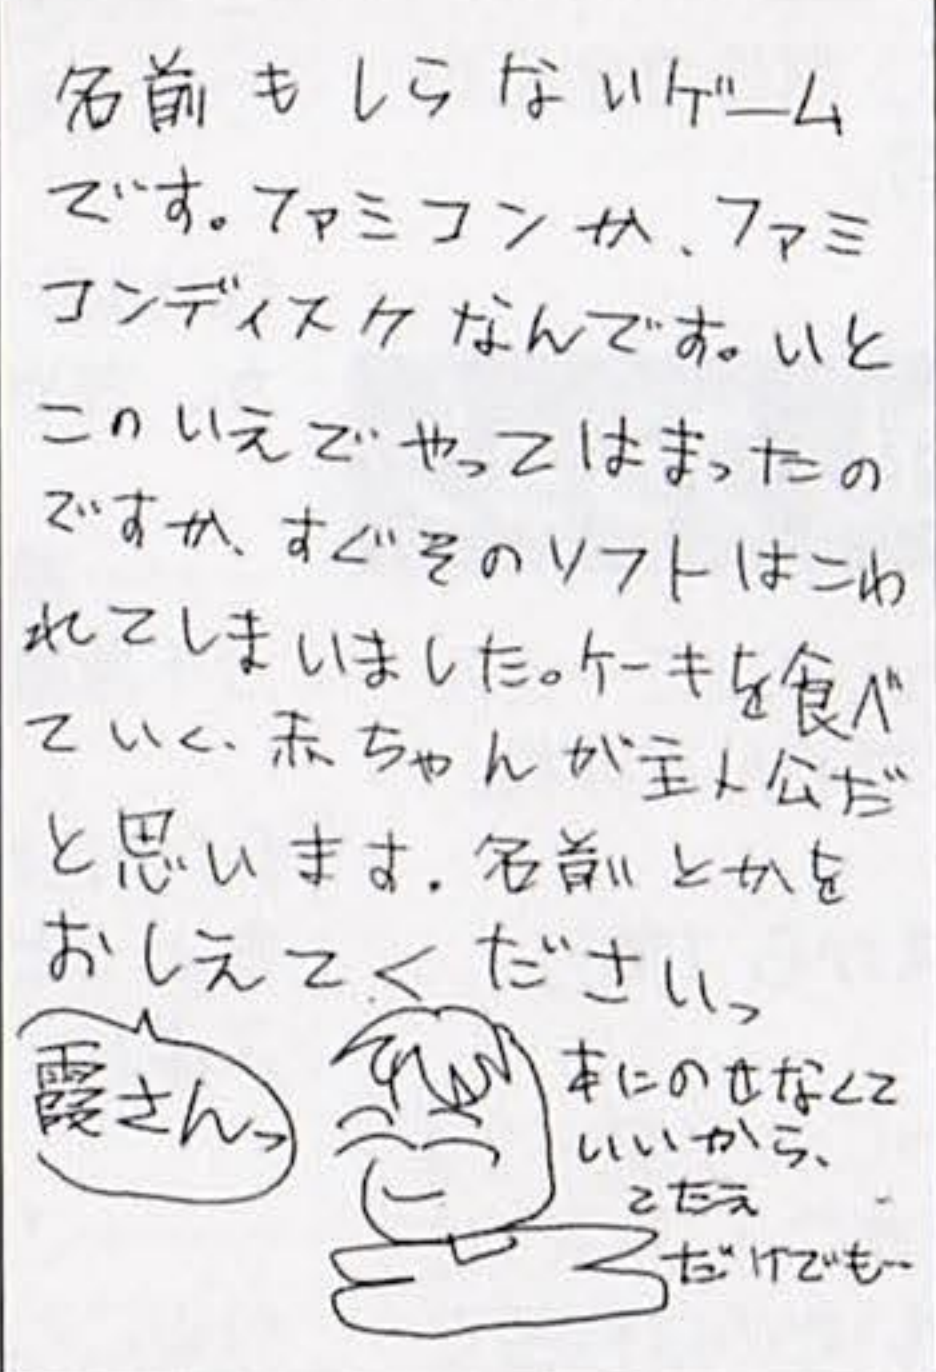 名前もしらないゲーム
です。ファミコンか、ファミ
コンディスクなんです。いと
このいえでやってはまったの
ですか、すぐそのソフトはこわ
れてしまいました。ケーキを食べ
ていく、赤ちゃんが主人公だ
と思います。名前とかを
おしえてくださいっ
霞さんっ
本にのせなくて
いいから、
こたえ
だけでも…